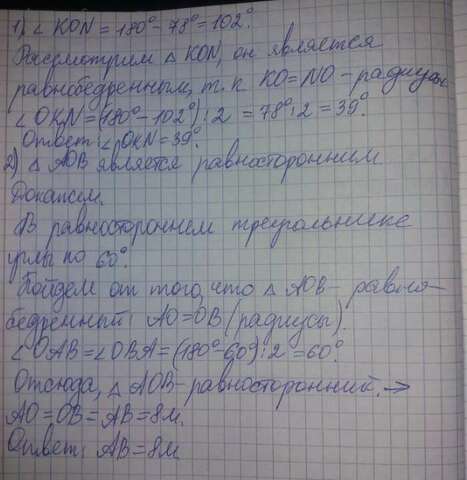 1) ∠KON = 180° - 78° = 102°.
Рассмотрим △ KON, он является
равнобедренным, т.к. KO=NO - радиусы
∠OKN=(180°-102°):2 = 78°:2 = 39°.
Ответ: ∠OKN=39°.
2) △ AOB является равносторонним.
Докажем.
В равностороннем треугольнике
углы по 60°.
Пойдем от того, что △ AOB - равно-
бедренный: AO=OB (радиусы).
∠OAB=∠OBA=(180°-60°):2=60°.
Отсюда, △ AOB - равносторонний. →
AO=OB=AB=8м.
Ответ: AB=8м